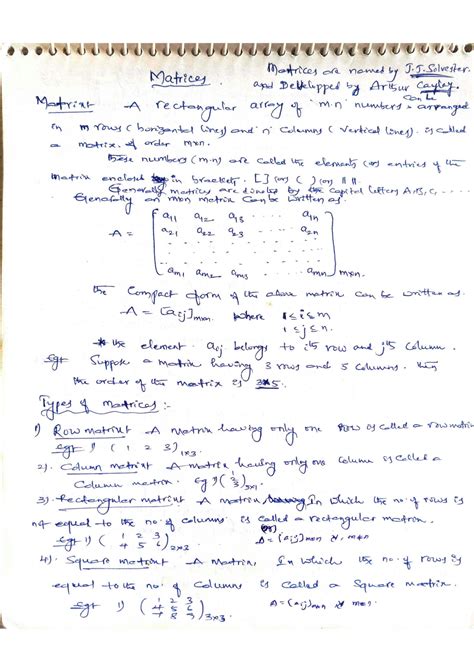 Matrices are named by J.J. Solvester.
Matrices. and Developped by Arthur Cayley.
Matrix:- A rectangular array of 'm.n' numbers can be arranged
in m rows (horizontal lines) and 'n' columns (vertical lines). is called
a matrix. of order m×n.
these numbers (m.n) are called the elements (or) entries of the
matrix enclosed in brackets. [ ] (or) ( ) (or) || ||.
Generally matrices are denoted by the capital letters A, B, C, ....
Generally an m×n matrix can be written as.
A = [ a11 a12 a13 ..... a1n
a21 a22 a23 ..... a2n
am1 am2 am3 ..... amn ] m×n.
the compact form of the above matrix can be written as.
A = [aij]m×n. where 1≤i≤m
1≤j≤n.
* the element aij belongs to ith row and jth column.
Eg:- Suppose a matrix having 3 rows and 5 columns. then
the order of the matrix is 3×5.
Types of matrices:-
1) Row matrix:- A matrix having only one row is called a row matrix
Eg:- 1) ( 1 2 3 )1×3
2). Column matrix:- A matrix having only one column is called a
Column matrix. eg:) ( 1 3 )3×1.
3). Rectangular matrix:- A matrix in which the no. of rows is
not equal to the no. of columns is called a rectangular matrix.
Eg:- 1) ( 1 2 3
4 5 6 )2×3 (or) A = [aij]m×n m≠n
4). Square matrix:- A matrix, in which the no. of rows is
equal to the no. of columns is called a square matrix.
Eg:- 1) ( 1 2 3
4 5 6
7 8 9 )3×3 A = [aij]m×n m=n.